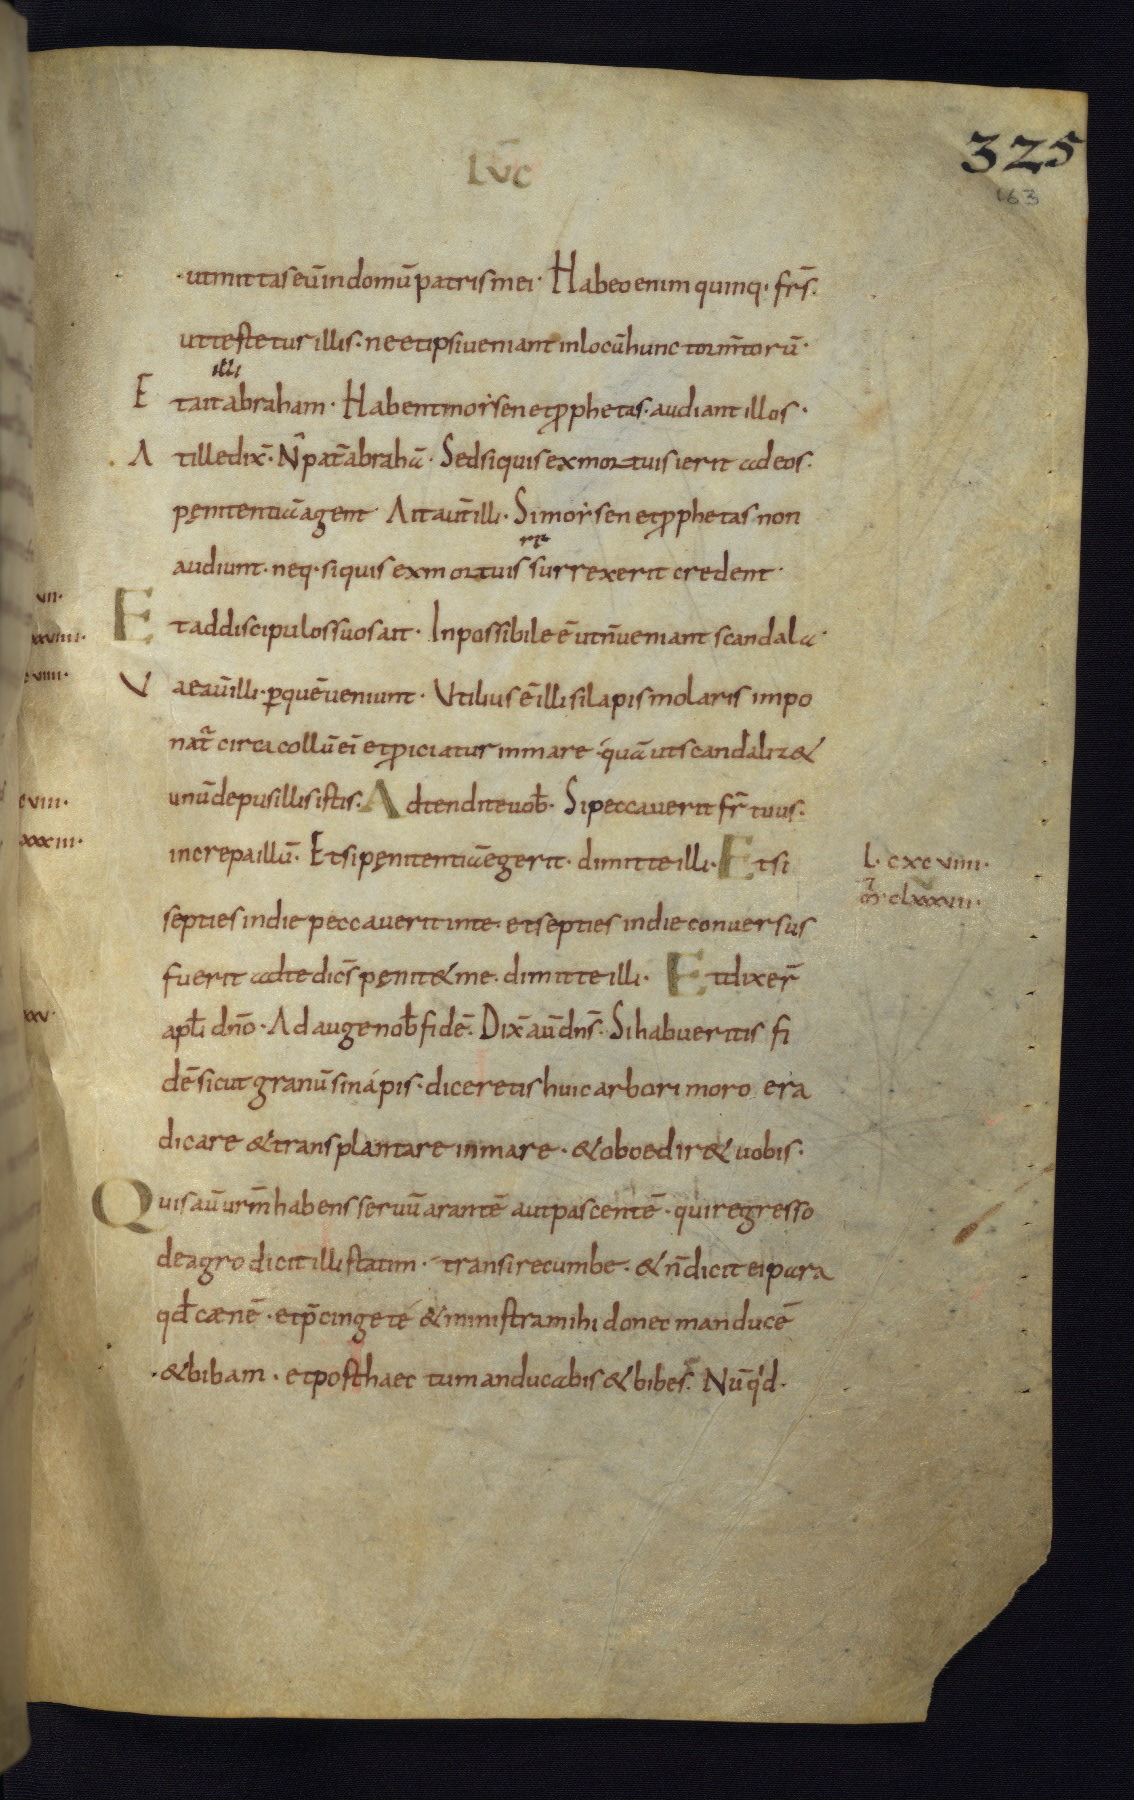 LŪC
325
163
ut mittas eū in domū patris mei · Habeo enim quinq· fr̄s ·
ut testetur illis · ne et ipsi veniant in locū hunc torm̄torū ·
illi
Et ait abraham · Habent moẏsen et ꝓphetas · audiant illos ·
At ille dix̄ · N̄ pat̄ abrahā · Sed si quis ex mortuis ierit ad eos ·
pęnitentiā agent · Ait aut̄ illi · Si moẏsen et ꝓphetas non
audiunt · neq· si quis ex mortuis surrexerit credent ·
Et ad discipulos suos ait · Inpossibile ē ut n̄ veniant scandala ·
Vae aū illi · ꝑ quē veniunt · Utilius ē illi si lapis molaris impo
nat̄ circa collū ei et ꝓiciatur in mare · quā ut scandaliz&
unū de pusillis istis · Adtendite vob̄ · Si peccaverit fr̄ tuus ·
increpa illū · Et si pęnitentiā egerit · dimitte illi · Et si
L · cxcviiii ·
m̄r · clxxxiii ·
septies in die peccaverit in te · et septies in die conversus
fuerit ad te dic̄s pęnit& me · dimitte illi · Et dixer̄
apl̄i dn̄o · Adauge nob̄ fidē · Dix̄ aū dn̄s · Si habueritis fi
dē sicut granū sinapis · diceretis huic arbori moro era
dicare & transplantare in mare · & oboedir& vobis ·
Quis aū ur̄m habens servū arantē aut pascentē · qui regresso
de agro dicit illi statim · transi recumbe · & n̄ dicit ei para
qd̄ cænē · et p̄cinge te & ministra mihi donec manducē
& bibam · et post haec tu manducabis & bibes · Nūqd ·